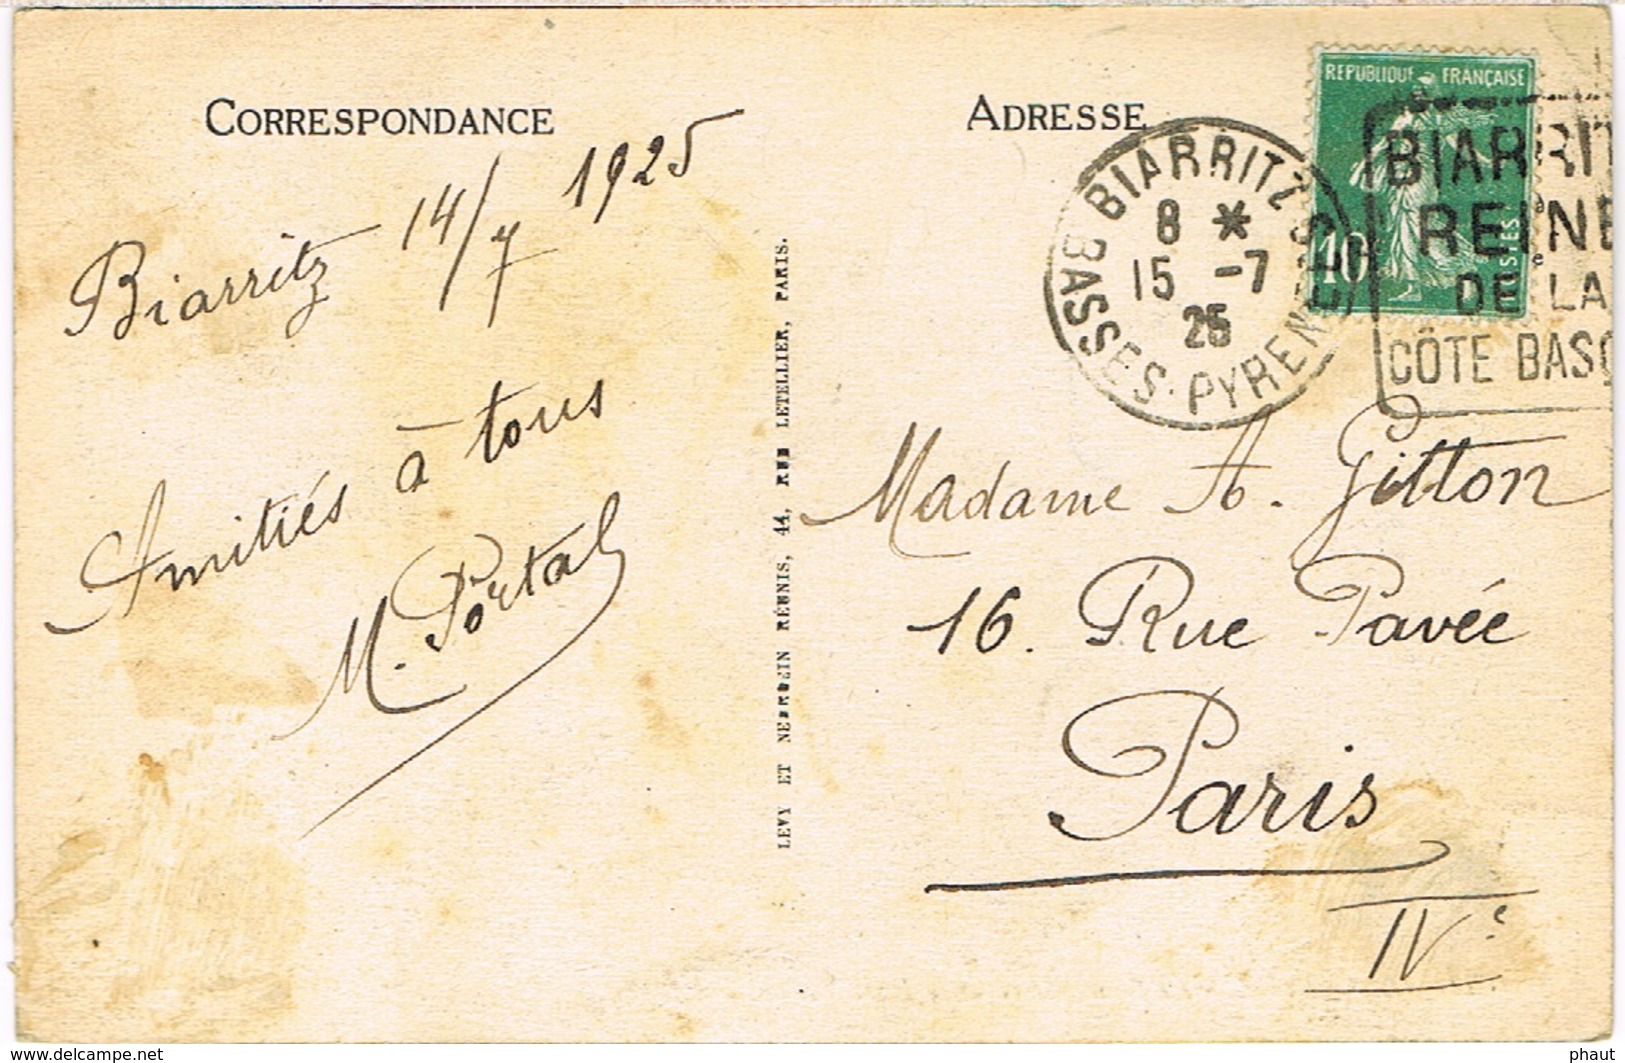 CORRESPONDANCE
Biarritz 14/7 1925
Amitiés à tous
M. Portal
LEVY ET NEURDEIN RÉUNIS, 44, RUE LETELLIER, PARIS.
ADRESSE
BIARRITZ
BASSES-PYRENEES
8 *
15 -7
25
REPUBLIQUE FRANÇAISE
10
POSTES
BIARRIT
REINE
DE LA
CÔTE BASQ
Madame A. Gitton
16. Rue Pavée
Paris
IVe
www.delcampe.net
phaut